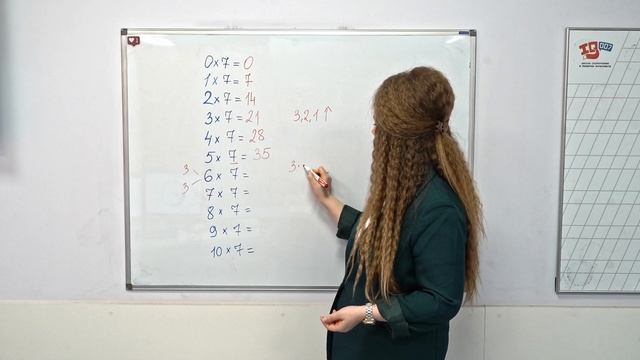 0 × 7 = 0
1 × 7 = 7
2 × 7 = 14
3 × 7 = 21
4 × 7 = 28
5 × 7 = 35
3
6 × 7 =
3
7 × 7 =
8 × 7 =
9 × 7 =
10 × 7 =
3,2,1 ↑
3.
IQ 007